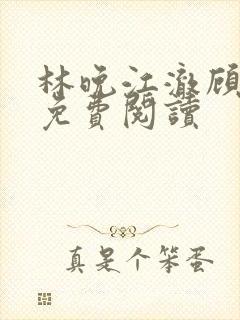 林晚江澈顾
免費閱讀
真是个笨蛋